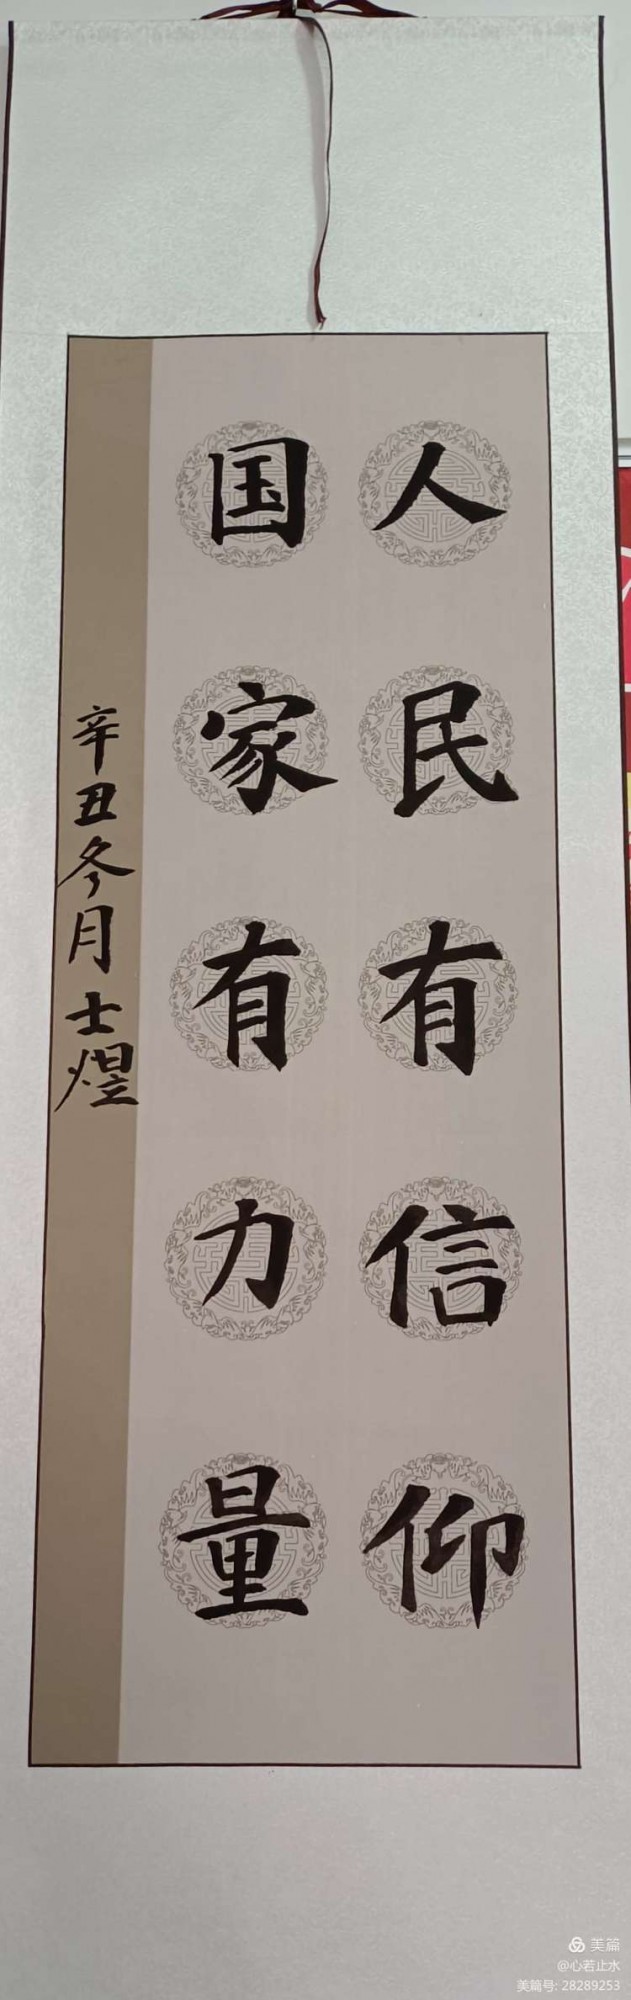 人民有信仰
国家有力量
辛丑冬月士煜
美篇
@心若止水
美篇号: 28289253